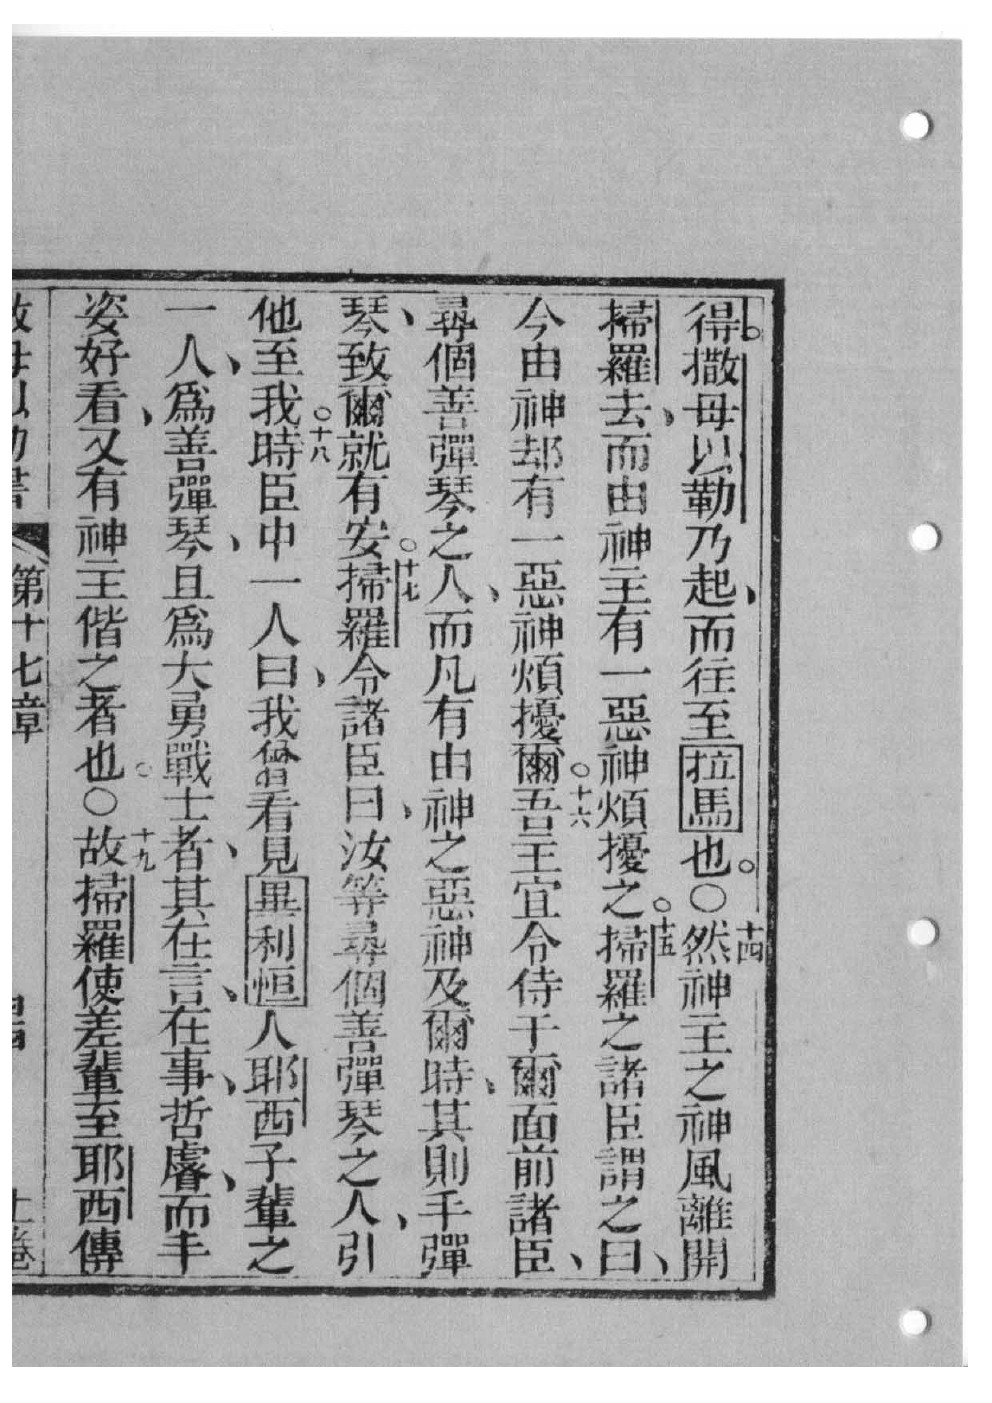 得撒母以勒乃起而往至拉馬也○然神主之神風離開
十四
掃羅去而由神主有一惡神煩擾之掃羅之諸臣謂之曰
十五
今由神却有一惡神煩擾爾吾主宜令侍于爾面前諸臣
十六
尋個善彈琴之人而凡有由神之惡神及爾時其則手彈
琴致爾就有安掃羅令諸臣曰汝等尋個善彈琴之人引
十七
他至我時臣中一人曰我曾看見畢利恒人耶西子輩之
十八
一人爲善彈琴且爲大勇戰士者其在言在事哲睿而丰
姿好看又有神主偕之者也○故掃羅使差輩至耶西傳
十九
第十七章